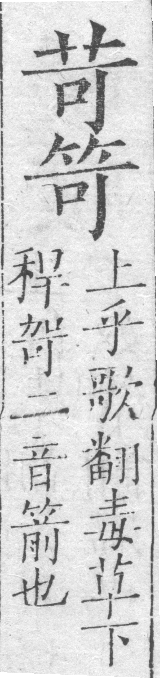 苛笴
上乎歌翻毒草下
稈哿二音箭也